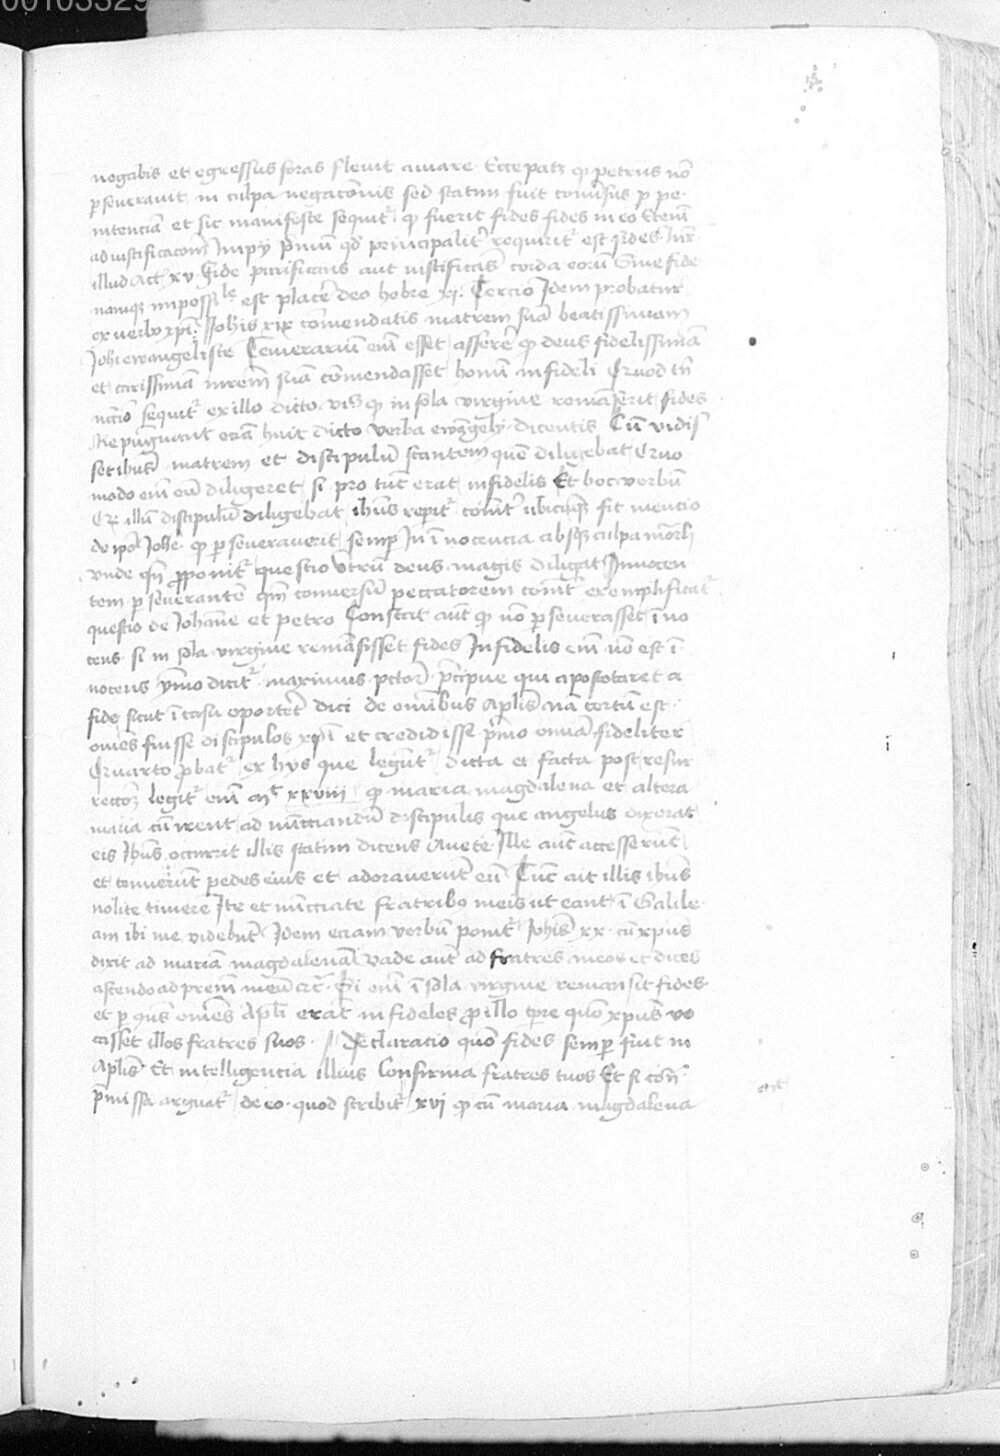 00103329
negabis et egressus foras flevit amare. Ecce patz qp petrus nō
pseveravit in culpa negacōnis sed statim fuit convsus p pe-
nitenciā et sic manifeste sequitr qp fuerit fides fides in eo Etenī
ad iustificacōnē Impij pmū qd principalitr requiritr est fides Iux
illud Act xv fide purificans aut iustificās corda eorū Sine fide
namqz impossible est placē deo hebre xj. Tercio Idem probatur
ex verbo xpi Johis xix cōmendatis matrem suā beatissimam
Johi ewangeliste Temerariū eni esset assere qp deus fidelissimā
et carissimā mrem suā cōmendasset homī infideli Quod tn
ncrio sequitr ex illo dicto vis qp in sola virgine remāserit fides
Repugnant eciā huic dicto verba ewāgely dicentis Cū vidis
set ihus matrem et discipulū stantem quē diligebat Quo
modo eni eū diligeret si pro tūc erat infidelis Et hoc verbū
Qz illū discipulū diligebat ihus repitr cōmtr ubicūqz fit mencio
de ipo Johe qp pseveraverit semp In īnocencia absqz culpa mōrli
vnde qn pponitr questio vtrū deus magis diligat Innocen
tem pseverantē qm conversū peccatorem cōmtr exemplificatr
questio de Johāne et petro Constat aūt qp nō pseverasset īno
cens si in sola virgine remāsisset fides Infidelis enī nō est ī-
nocens ymo dicitr maximus pctor pcipue qui apostotaret a
fide sicut ī casu oportet dici de omībus aplis nā certū est
omēs fuisse discipulos xpi et credidisse pmo omīa fideliter
Quarto pbatr ex hys que leguntr dicta et facta post resur
reccōz legitr enī Mt xxviii qp maria magdalena et altera
maria cū irent ad nūcciandū discipulis que angelus dixerat
eis Ihus occurrit illis statim dicens Avete Ille aūt accesserūt
et tenuerūt pedes eius et adoraverūt eū Tūc ait illis ihus
nolite timere Ite et nūcciate fratribz meis ut eant ī Galile-
am ibi me videbūt Idem eciam verbū ponitr Johis xx cū xpus
dixit ad mariā magdalenā vade aūt ad fratres meos et dices
ascendo ad prem meū etc Si enī ī sola virgine remansit fides
et p qns omēs Apli erāt infideles p illo tpre quo xpus vo
casset illos fratres suos // Declaracio quō fides semp fuit in
Aplis Et intelligencia illius Confirma fratres tuos Et si con
pmissa arguatr de eo quod scribitr xvi qp cū maria magdalena